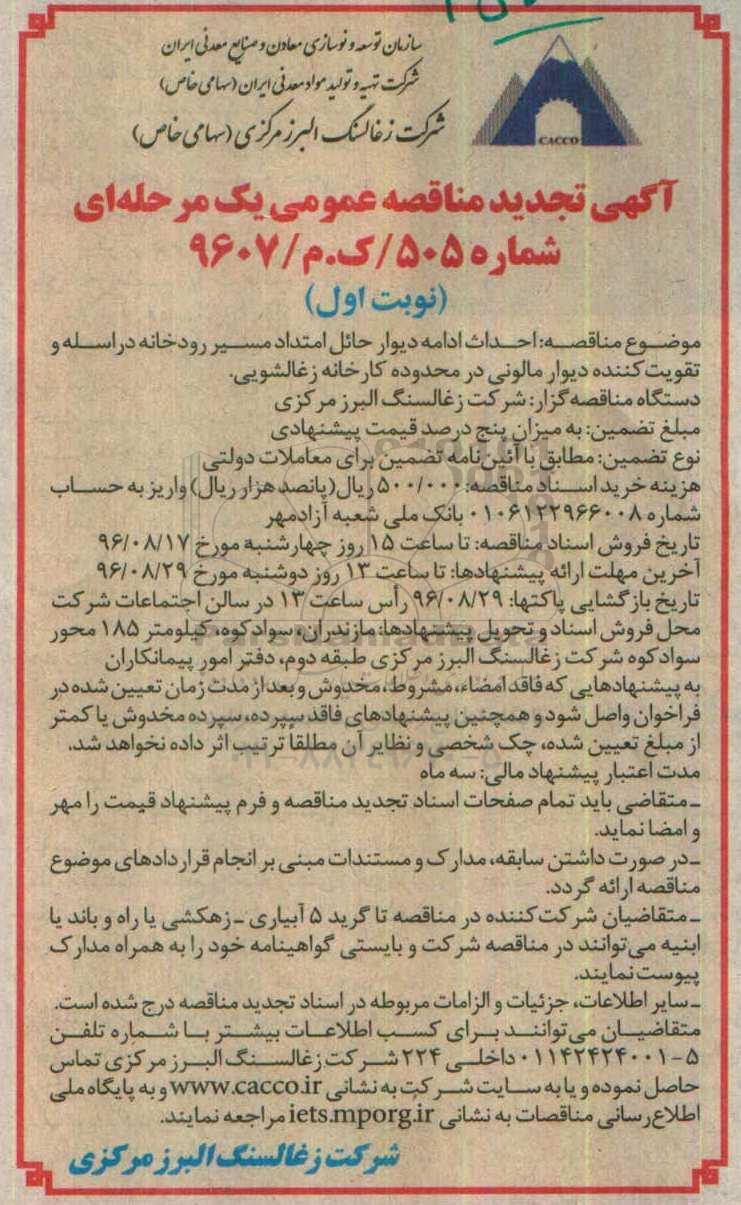 سازمان توسعه و نوسازی معادن و صنایع معدنی ایران
شرکت تهیه و تولید مواد معدنی ایران (سهامی خاص)
شرکت زغالسنگ البرز مرکزی (سهامی خاص)
CACCO
آگهی تجدید مناقصه عمومی یک مرحله‌ای
شماره ۵۰۵/ک.م/۹۶۰۷
(نوبت اول)
موضوع مناقصه: احداث ادامه دیوار حائل امتداد مسیر رودخانه دراسله و
تقویت‌کننده دیوار مالونی در محدوده کارخانه زغالشویی.
دستگاه مناقصه‌گزار: شرکت زغالسنگ البرز مرکزی
مبلغ تضمین: به میزان پنج درصد قیمت پیشنهادی
نوع تضمین: مطابق با آئین‌نامه تضمین برای معاملات دولتی
هزینه خرید اسناد مناقصه: ۵۰۰/۰۰۰ ریال (پانصد هزار ریال) واریز به حساب
شماره ۰۱۰۶۱۲۲۹۶۶۰۰۸ بانک ملی شعبه آزادمهر
تاریخ فروش اسناد مناقصه: تا ساعت ۱۵ روز چهارشنبه مورخ ۹۶/۰۸/۱۷
آخرین مهلت ارائه پیشنهادها: تا ساعت ۱۳ روز دوشنبه مورخ ۹۶/۰۸/۲۹
تاریخ بازگشایی پاکتها: ۹۶/۰۸/۲۹ رأس ساعت ۱۳ در سالن اجتماعات شرکت
محل فروش اسناد و تحویل پیشنهادها: مازندران، سوادکوه، کیلومتر ۱۸۵ محور
سوادکوه شرکت زغالسنگ البرز مرکزی طبقه دوم، دفتر امور پیمانکاران
به پیشنهادهایی که فاقد امضاء، مشروط، مخدوش و بعد از مدت زمان تعیین شده در
فراخوان واصل شود و همچنین پیشنهادهای فاقد سپرده، سپرده مخدوش یا کمتر
از مبلغ تعیین شده، چک شخصی و نظایر آن مطلقا ترتیب اثر داده نخواهد شد.
مدت اعتبار پیشنهاد مالی: سه ماه
ـ متقاضی باید تمام صفحات اسناد تجدید مناقصه و فرم پیشنهاد قیمت را مهر
و امضا نماید.
ـ در صورت داشتن سابقه، مدارک و مستندات مبنی بر انجام قراردادهای موضوع
مناقصه ارائه گردد.
ـ متقاضیان شرکت‌کننده در مناقصه تا گرید ۵ آبیاری ـ زهکشی یا راه و باند یا
ابنیه می‌توانند در مناقصه شرکت و بایستی گواهینامه خود را به همراه مدارک
پیوست نمایند.
ـ سایر اطلاعات، جزئیات و الزامات مربوطه در اسناد تجدید مناقصه درج شده است.
متقاضیان می‌توانند برای کسب اطلاعات بیشتر با شماره تلفن
۰۱۱۴۲۴۲۴۰۰۱-۵ داخلی ۲۲۴ شرکت زغالسنگ البرز مرکزی تماس
حاصل نموده و یا به سایت شرکت به نشانی www.cacco.ir و به پایگاه ملی
اطلاع‌رسانی مناقصات به نشانی iets.mporg.ir مراجعه نمایند.
شرکت زغالسنگ البرز مرکزی